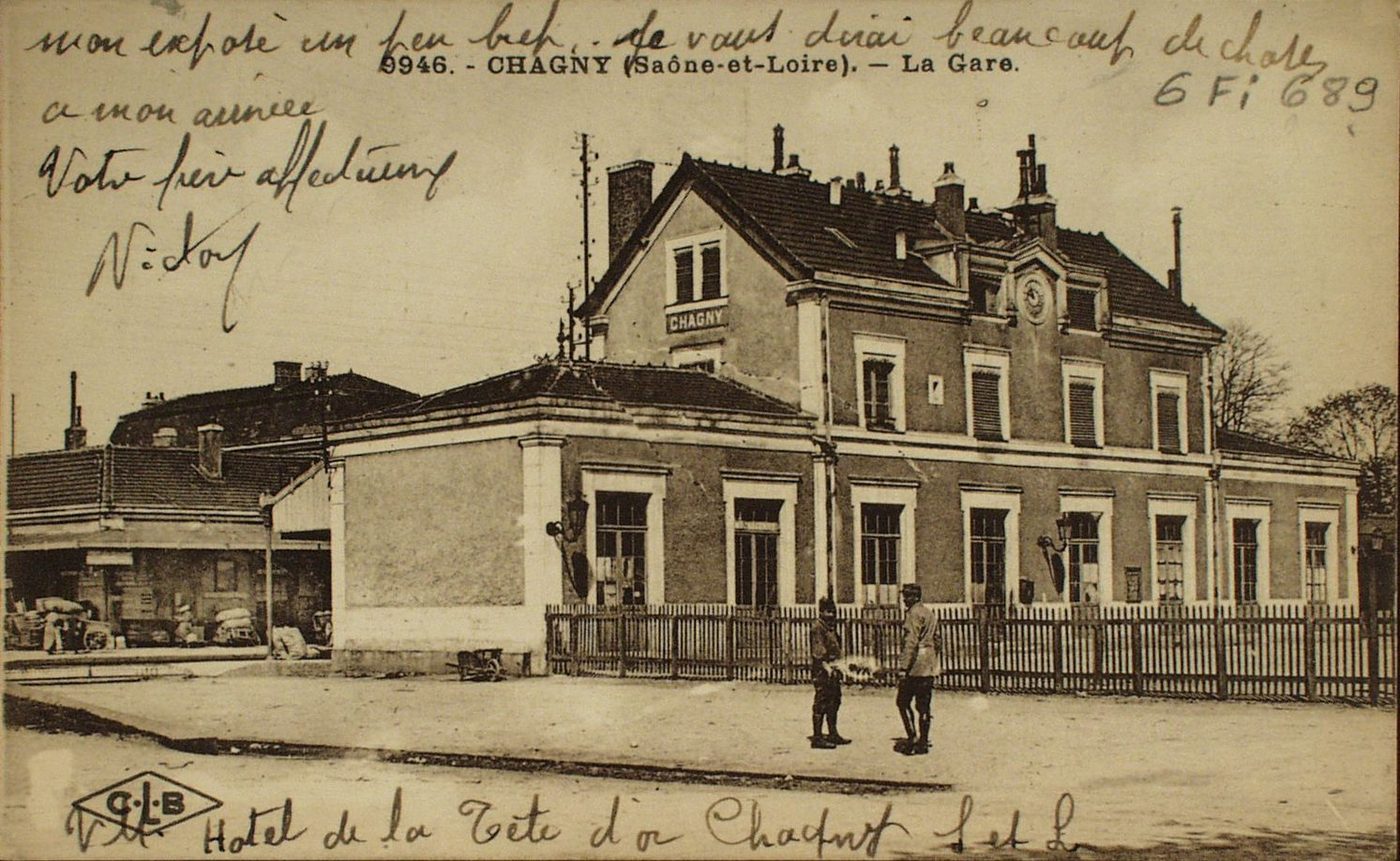 mon exposé un peu bref, je vous dirai beaucoup de choses
9946. - CHAGNY (Saône-et-Loire). — La Gare.
6 Fi 689
a mon arrivée
Votre frère affectueux
Victor
CHAGNY
C·L·B
Hotel de la Tête d'or Chagny S et L